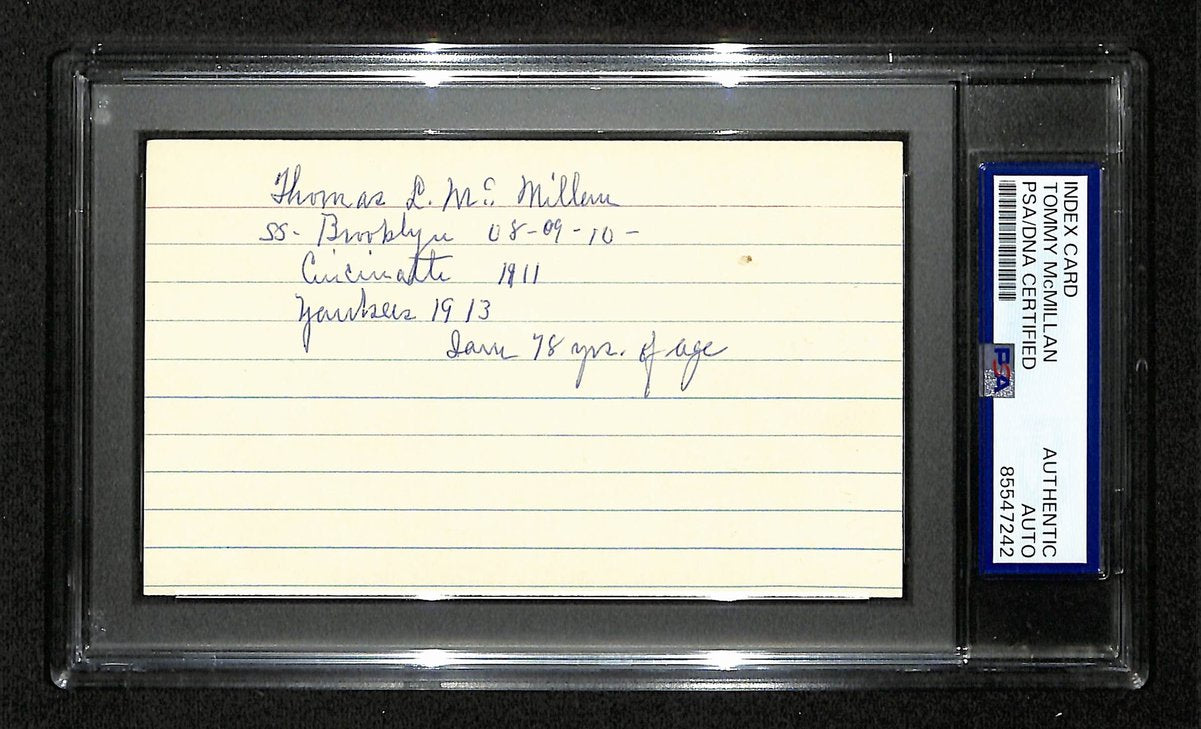 Thomas L. Mc Millan
SS- Brooklyn 08-09-10-
Cincinatti 1911
Yankees 1913
I am 78 yrs. of age
INDEX CARD
TOMMY McMILLAN
PSA/DNA CERTIFIED
PSA
AUTHENTIC
AUTO
85547242